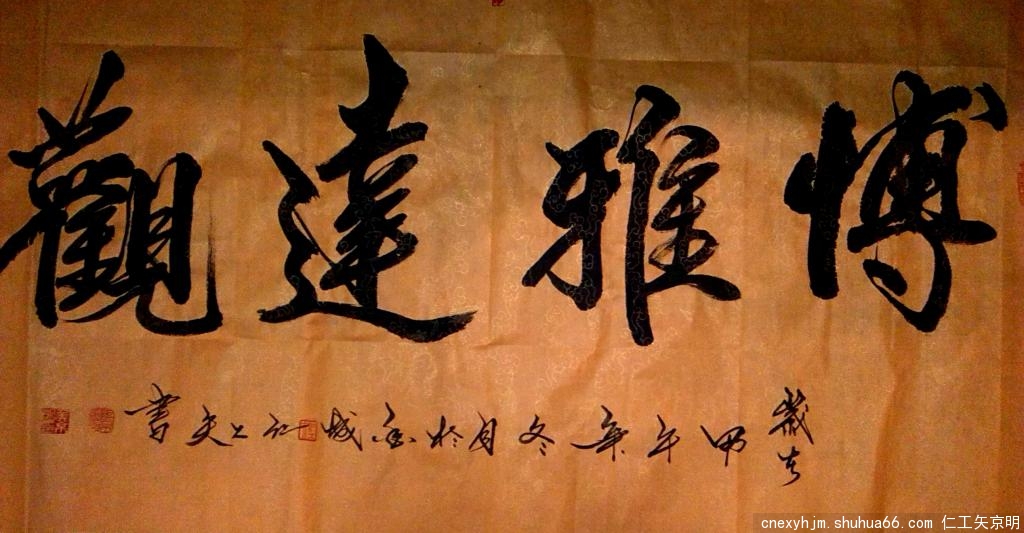 愽雅達觀
歲在
甲午年冬月於金城仁工矢書
cnexyhjm.shuhua66.com 仁工矢京明